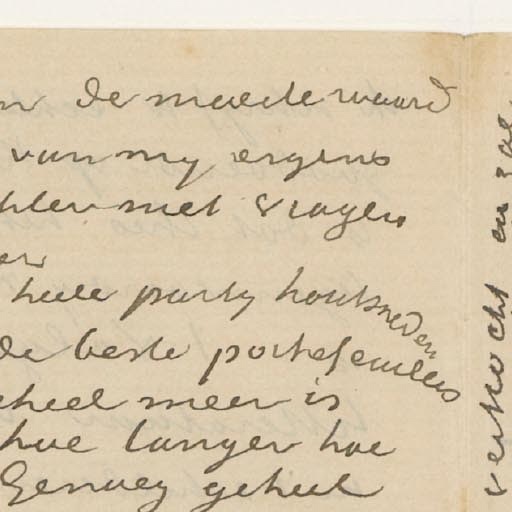 de moeite waard
van my ergens
met vragen
heele party houtsneden
de beste portefeuilles
geheel meer is
hoe langer hoe
Genoeg geheel
verkocht en zal